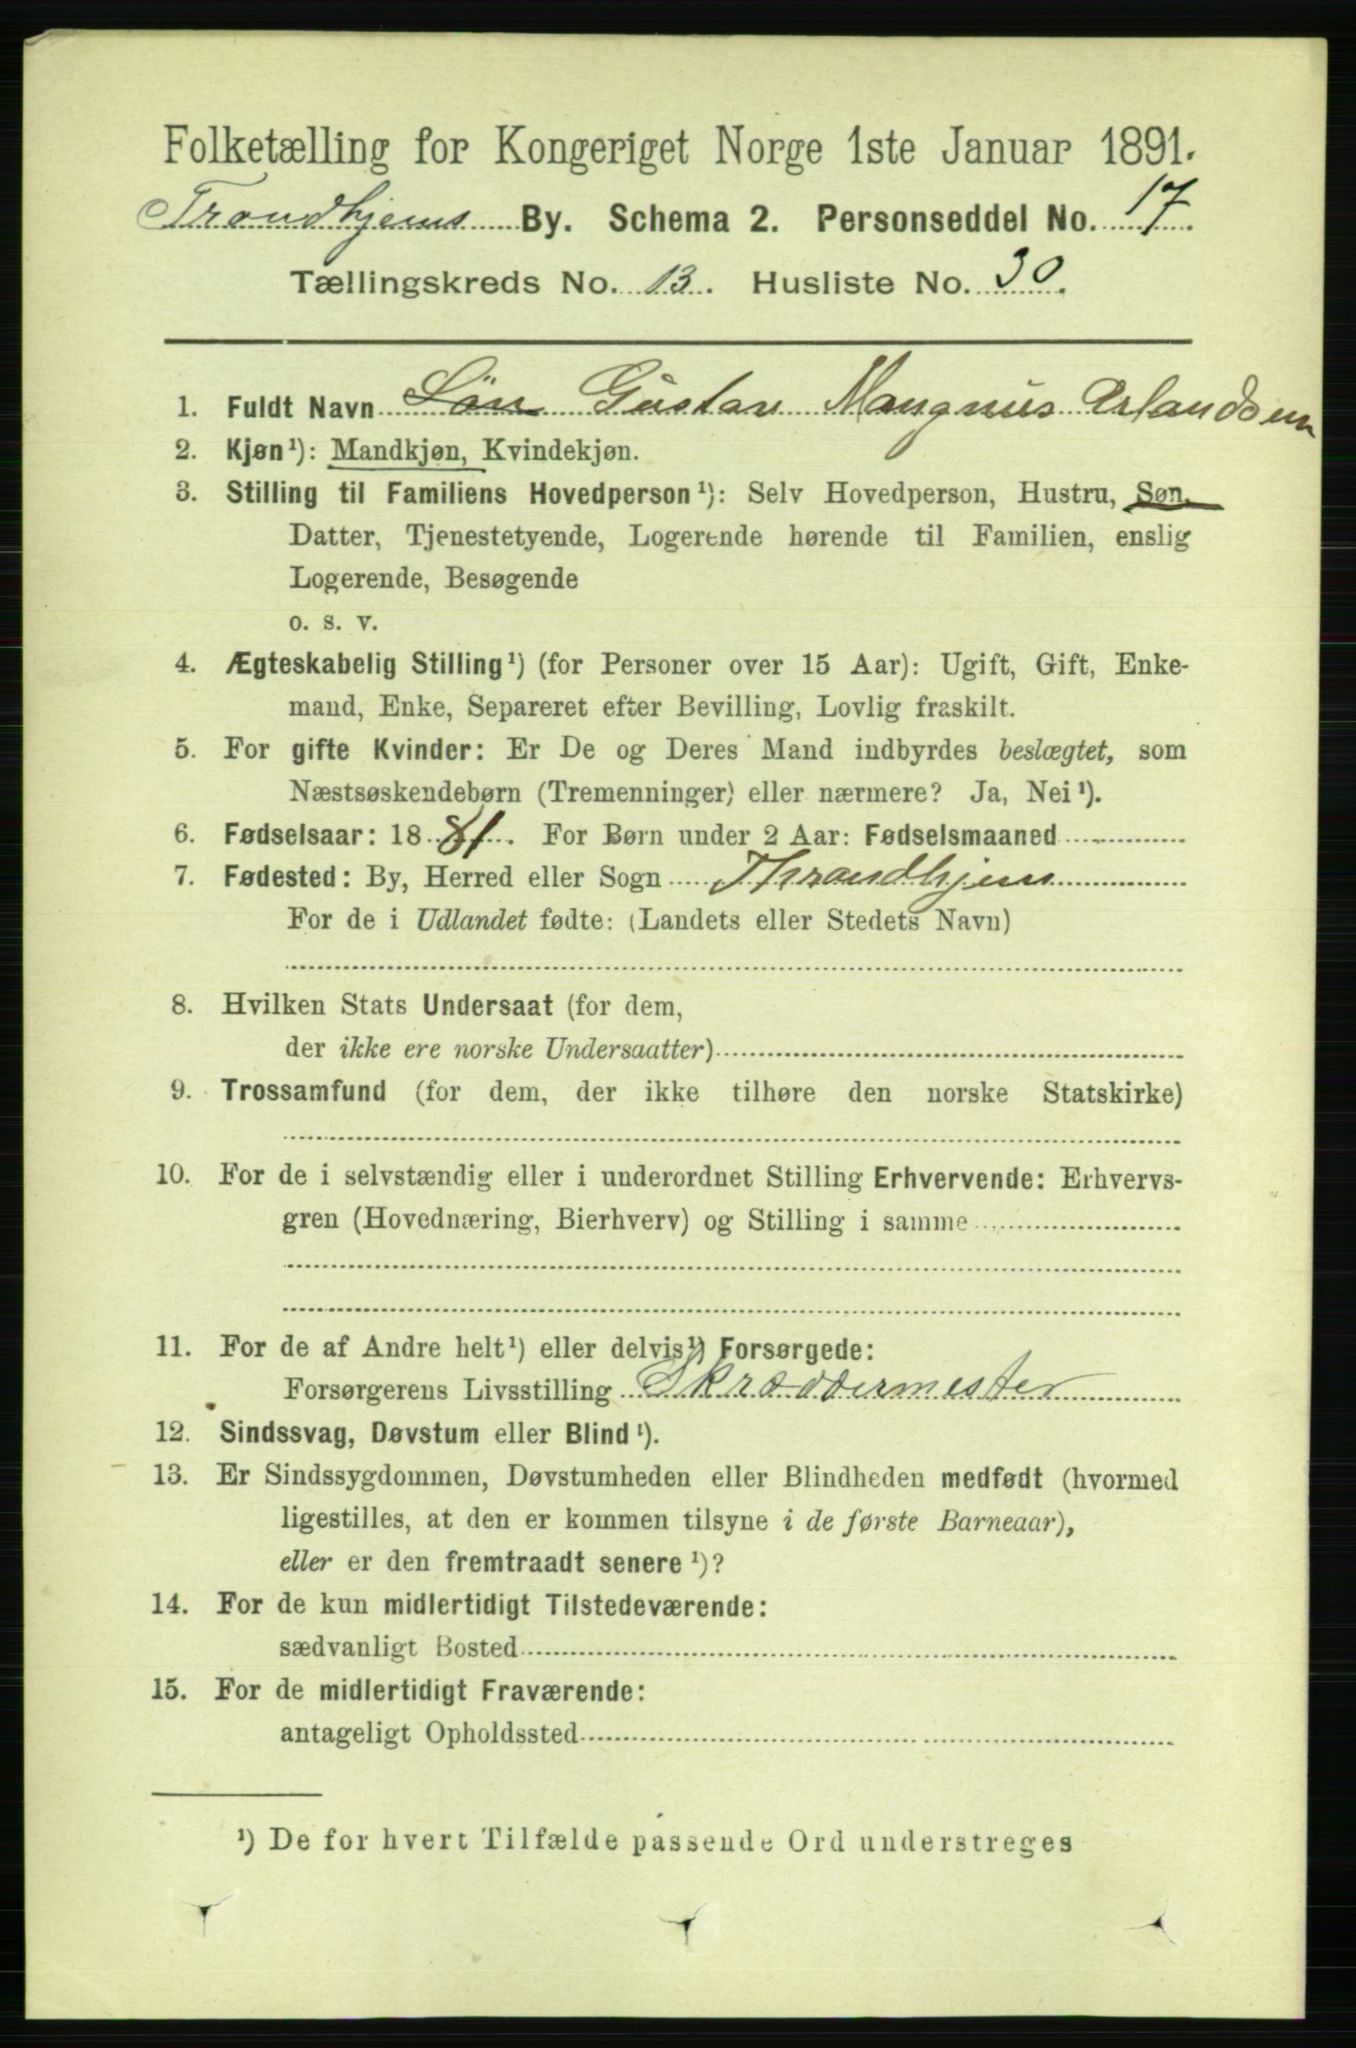 Folketælling for Kongeriget Norge 1ste Januar 1891.
Trondhjems By. Schema 2. Personseddel No. 17.
Tællingskreds No. 13. Husliste No. 30.
1. Fuldt Navn Sön Gustav Mangnus Arlandsen
2. Kjøn¹): Mandkjøn, Kvindekjøn.
3. Stilling til Familiens Hovedperson¹): Selv Hovedperson, Hustru, Søn,
Datter, Tjenestetyende, Logerende hørende til Familien, enslig
Logerende, Besøgende
o. s. v.
4. Ægteskabelig Stilling¹) (for Personer over 15 Aar): Ugift, Gift, Enke-
mand, Enke, Separeret efter Bevilling, Lovlig fraskilt.
5. For gifte Kvinder: Er De og Deres Mand indbyrdes beslægtet, som
Næstsøskendebørn (Tremenninger) eller nærmere? Ja, Nei¹).
6. Fødselsaar: 1881. For Børn under 2 Aar: Fødselsmaaned
7. Fødested: By, Herred eller Sogn Throndhjem
For de i Udlandet fødte: (Landets eller Stedets Navn)
8. Hvilken Stats Undersaat (for dem,
der ikke ere norske Undersaatter)
9. Trossamfund (for dem, der ikke tilhøre den norske Statskirke)
10. For de i selvstændig eller i underordnet Stilling Erhvervende: Erhvervs-
gren (Hovednæring, Bierhverv) og Stilling i samme
11. For de af Andre helt¹) eller delvis¹) Forsørgede:
Forsørgerens Livsstilling Skræddermester
12. Sindssvag, Døvstum eller Blind¹).
13. Er Sindssygdommen, Døvstumheden eller Blindheden medfødt (hvormed
ligestilles, at den er kommen tilsyne i de første Barneaar),
eller er den fremtraadt senere¹)?
14. For de kun midlertidigt Tilstedeværende:
sædvanligt Bosted
15. For de midlertidigt Fraværende:
antageligt Opholdssted
¹) De for hvert Tilfælde passende Ord understreges